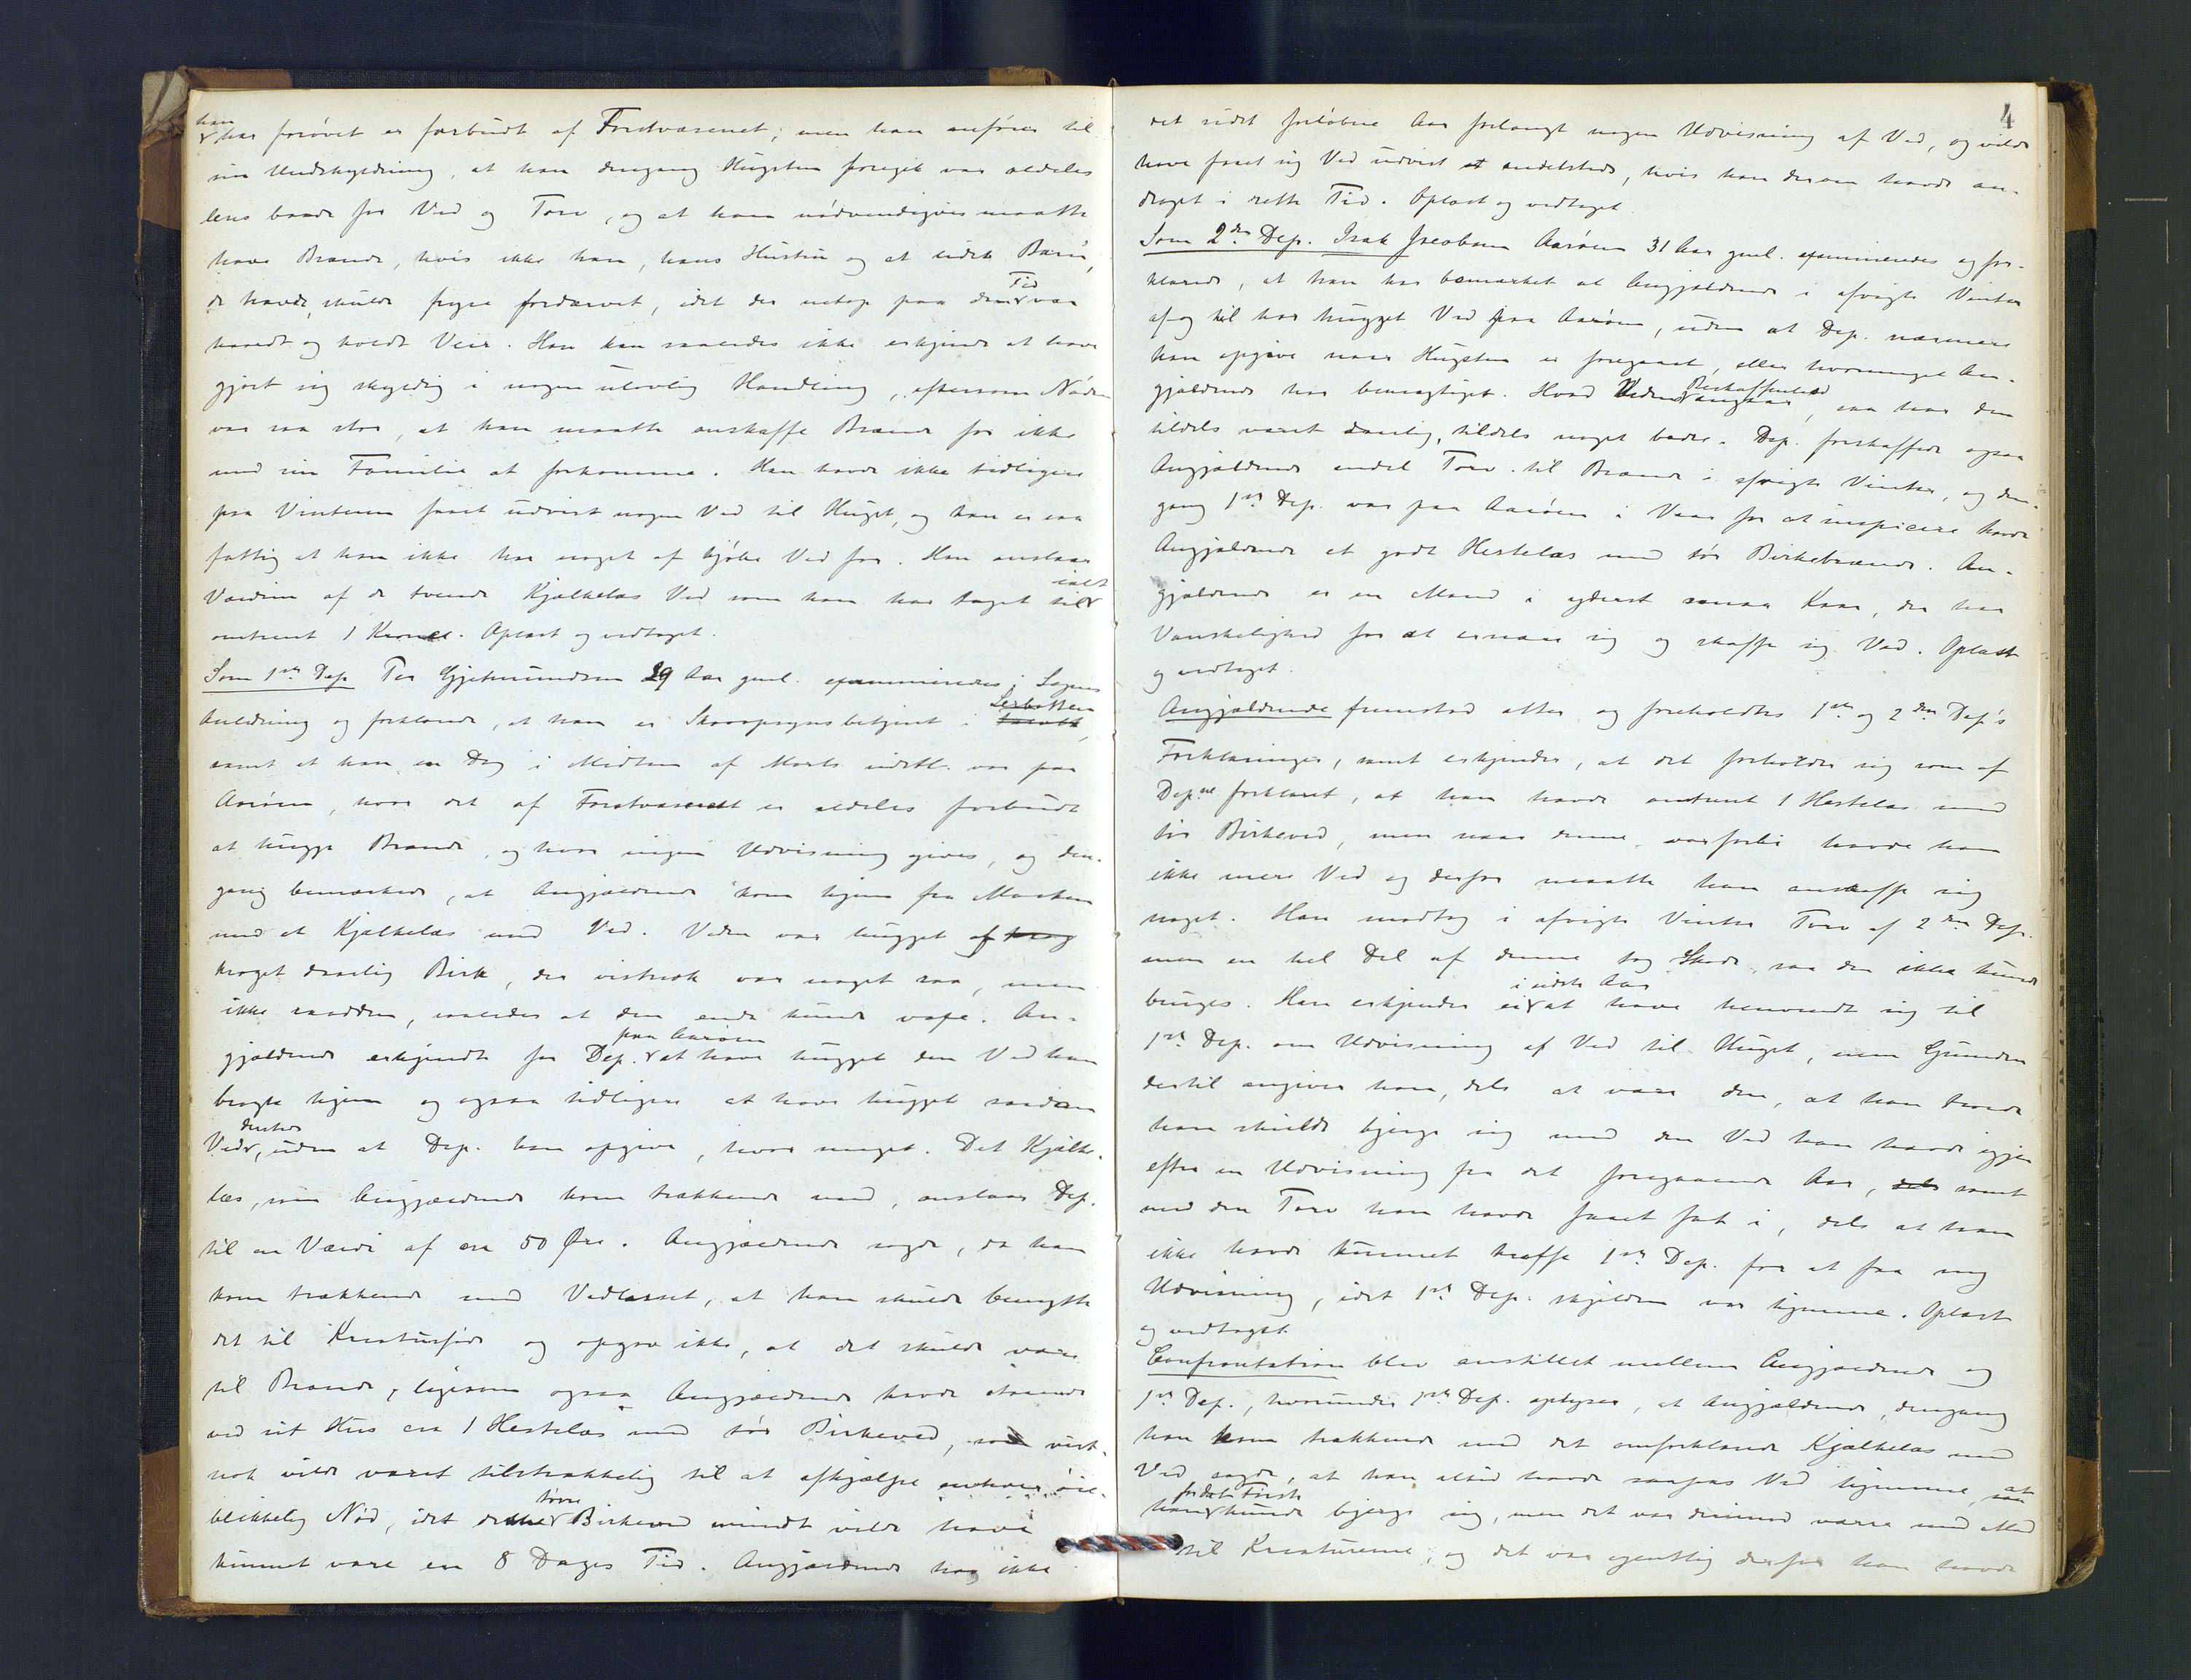 han
har forøvet er forbudt af Forstvæsenet; men han anfører til
sin Undskyldning, at han dengang Hugsten foregik var aldeles
løns baade for Ved og Torv, og at han nødvendigvis maatte
have Brænde, hvis ikke han, hans Hustru og et lidet Barn,
de havde, skulde fryse fordærvet, idet der netop paa den Tid var
haardt og koldt Veir. Han kan saaledes ikke erkjende at have
gjort sig skyldig i nogen ulovlig Handling, eftersom Nøden
var saa stor, at han maatte anskaffe Brænde for ikke
med sin Familie at forkomme. Han havde ikke tidligere
paa Vinteren faaet udvist nogen Ved til Huget, og han er saa
fattig at han ikke har noget at kjøbe Ved for. Han anslaar
Værdien af de tvende Kjælkelæs Ved som han har taget ialt til
omtrent 1 Krone. Oplæst og vedtaget.
Som 1ste Dep Per Gjetmundsen 29 Aar gml. examineredes i Sagens
Anledning og forklarede, at han er Skovopsynsbetjent i Leirbotten
samt at han en Dag i Midten af Marts sidstl. var paa
Aarøen, hvor det af Forstvæsenet er aldeles forbudt
at hugge Brænde, og hvor ingen Udvisning gives, og den-
gang bemærkede, at Angjældende kom hjem fra Marken
med et Kjælkelæs med Ved. Veden var hugget af krog
kroget daarlig Birk, der vistnok var noget raa, men
ikke raadden, saaledes at den endda kunde voxe. An-
gjældende erkjendte for Dep. paa Aarøen at have hugget den Ved han
bragte hjem og ogsaa tidligere at have hugget saadan
Ved dersteds, uden at Dep. kan opgive, hvor meget. Det Kjælke-
læs, som Angjældende kom trækkende med, anslaar Dep.
til en Værdi af ca 50 Øre. Angjældende sagde, da han
kom trækkende med Vedlasset, at han skulde benytte
det til Kreaturføde og opgav ikke, at det skulde være
til Brænde, ligesom ogsaa Angjældende havde staaende
ved sit Hus ca 1 Hestelæs med tør Birkeved, som vist-
nok vilde været tilstrækkelig til at afhjælpe enhver øie-
blikkelig Nød, idet denne tørre Birkeved mindst vilde have
kunnet vare en 8 Dages Tid. Angjældende har ikke
4
det sidst forløbne Aar forlangt nogen Udvisning af Ved, og vilde
have faaet sig Ved udvist et andetsteds, hvis han derom havde an-
draget i rette Tid. Oplæst og vedtaget.
Som 2den Dep. Isak Jacobsen Aarøen 31 Aar gml. examineredes og for-
klarede, at han har bemærket at Angjældende i afvigte Vinter
af og til har hugget Ved paa Aarøen, uden at Dep. nærmere
kan opgive naar Hugsten er foregaaet, eller hvormeget An-
gjældende har bemægtiget. Hvad Vedens Beskaffenhed angaar, saa har den
tildels været daarlig, tildels noget bedre. Dep. forskaffede ogsaa
Angjældende endel Torv til Brænde i afvigte Vinter, og den-
gang 1ste Dep. var paa Aarøen i Vaar for at inspicere havde
Angjældende et godt Hestelæs med tør Birkebrænde. An-
gjældende er en Mand i yderst smaa Kaar, der har
Vanskelighed for at ernære sig og skaffe sig Ved. Oplæst
og vedtaget.
Angjældende fremstod atter og foreholdtes 1ste og 2den Dep's
Forklaringer, samt erkjender, at det forholder sig som af
Dep.ne forklaret, at han havde omtrent 1 Hestelæs med
tør Birkeved, men naar denne var forbi havde han
ikke mere Ved og derfor maatte han anskaffe sig
noget. Han modtog i afvigte Vinter Torv af 2den Dep.
men en hel Del af denne tog Skade, saa den ikke kunde
bruges. Han erkjender ei i sidste Aar at have henvendt sig til
1ste Dep. om Udvisning af Ved til Huget, men Grunden
dertil angiver han, dels at være den, at han troede
han skulde bjerge sig med den Ved han havde igjen
efter en Udvisning fra det foregaaende Aar, dels samt
med den Torv han havde faaet fat i, dels at han
ikke havde kunnet træffe 1ste Dep. for at faa sig
Udvisning, idet 1ste Dep. skjelden var hjemme. Oplæst
og vedtaget.
Confrontation blev anstillet mellem Angjældende og
1ste Dep., hvorunder 1ste Dep. oplyser, at Angjældende, dengang
han kom trækkende med det omforklarede Kjælkelæs med
Ved, sagde, at han altid havde saapas Ved hjemme, saa at
han for det Første kunde bjerge sig, men det var derimod værre med Mad
til Kreaturerne, og det var egentlig derfor han havde